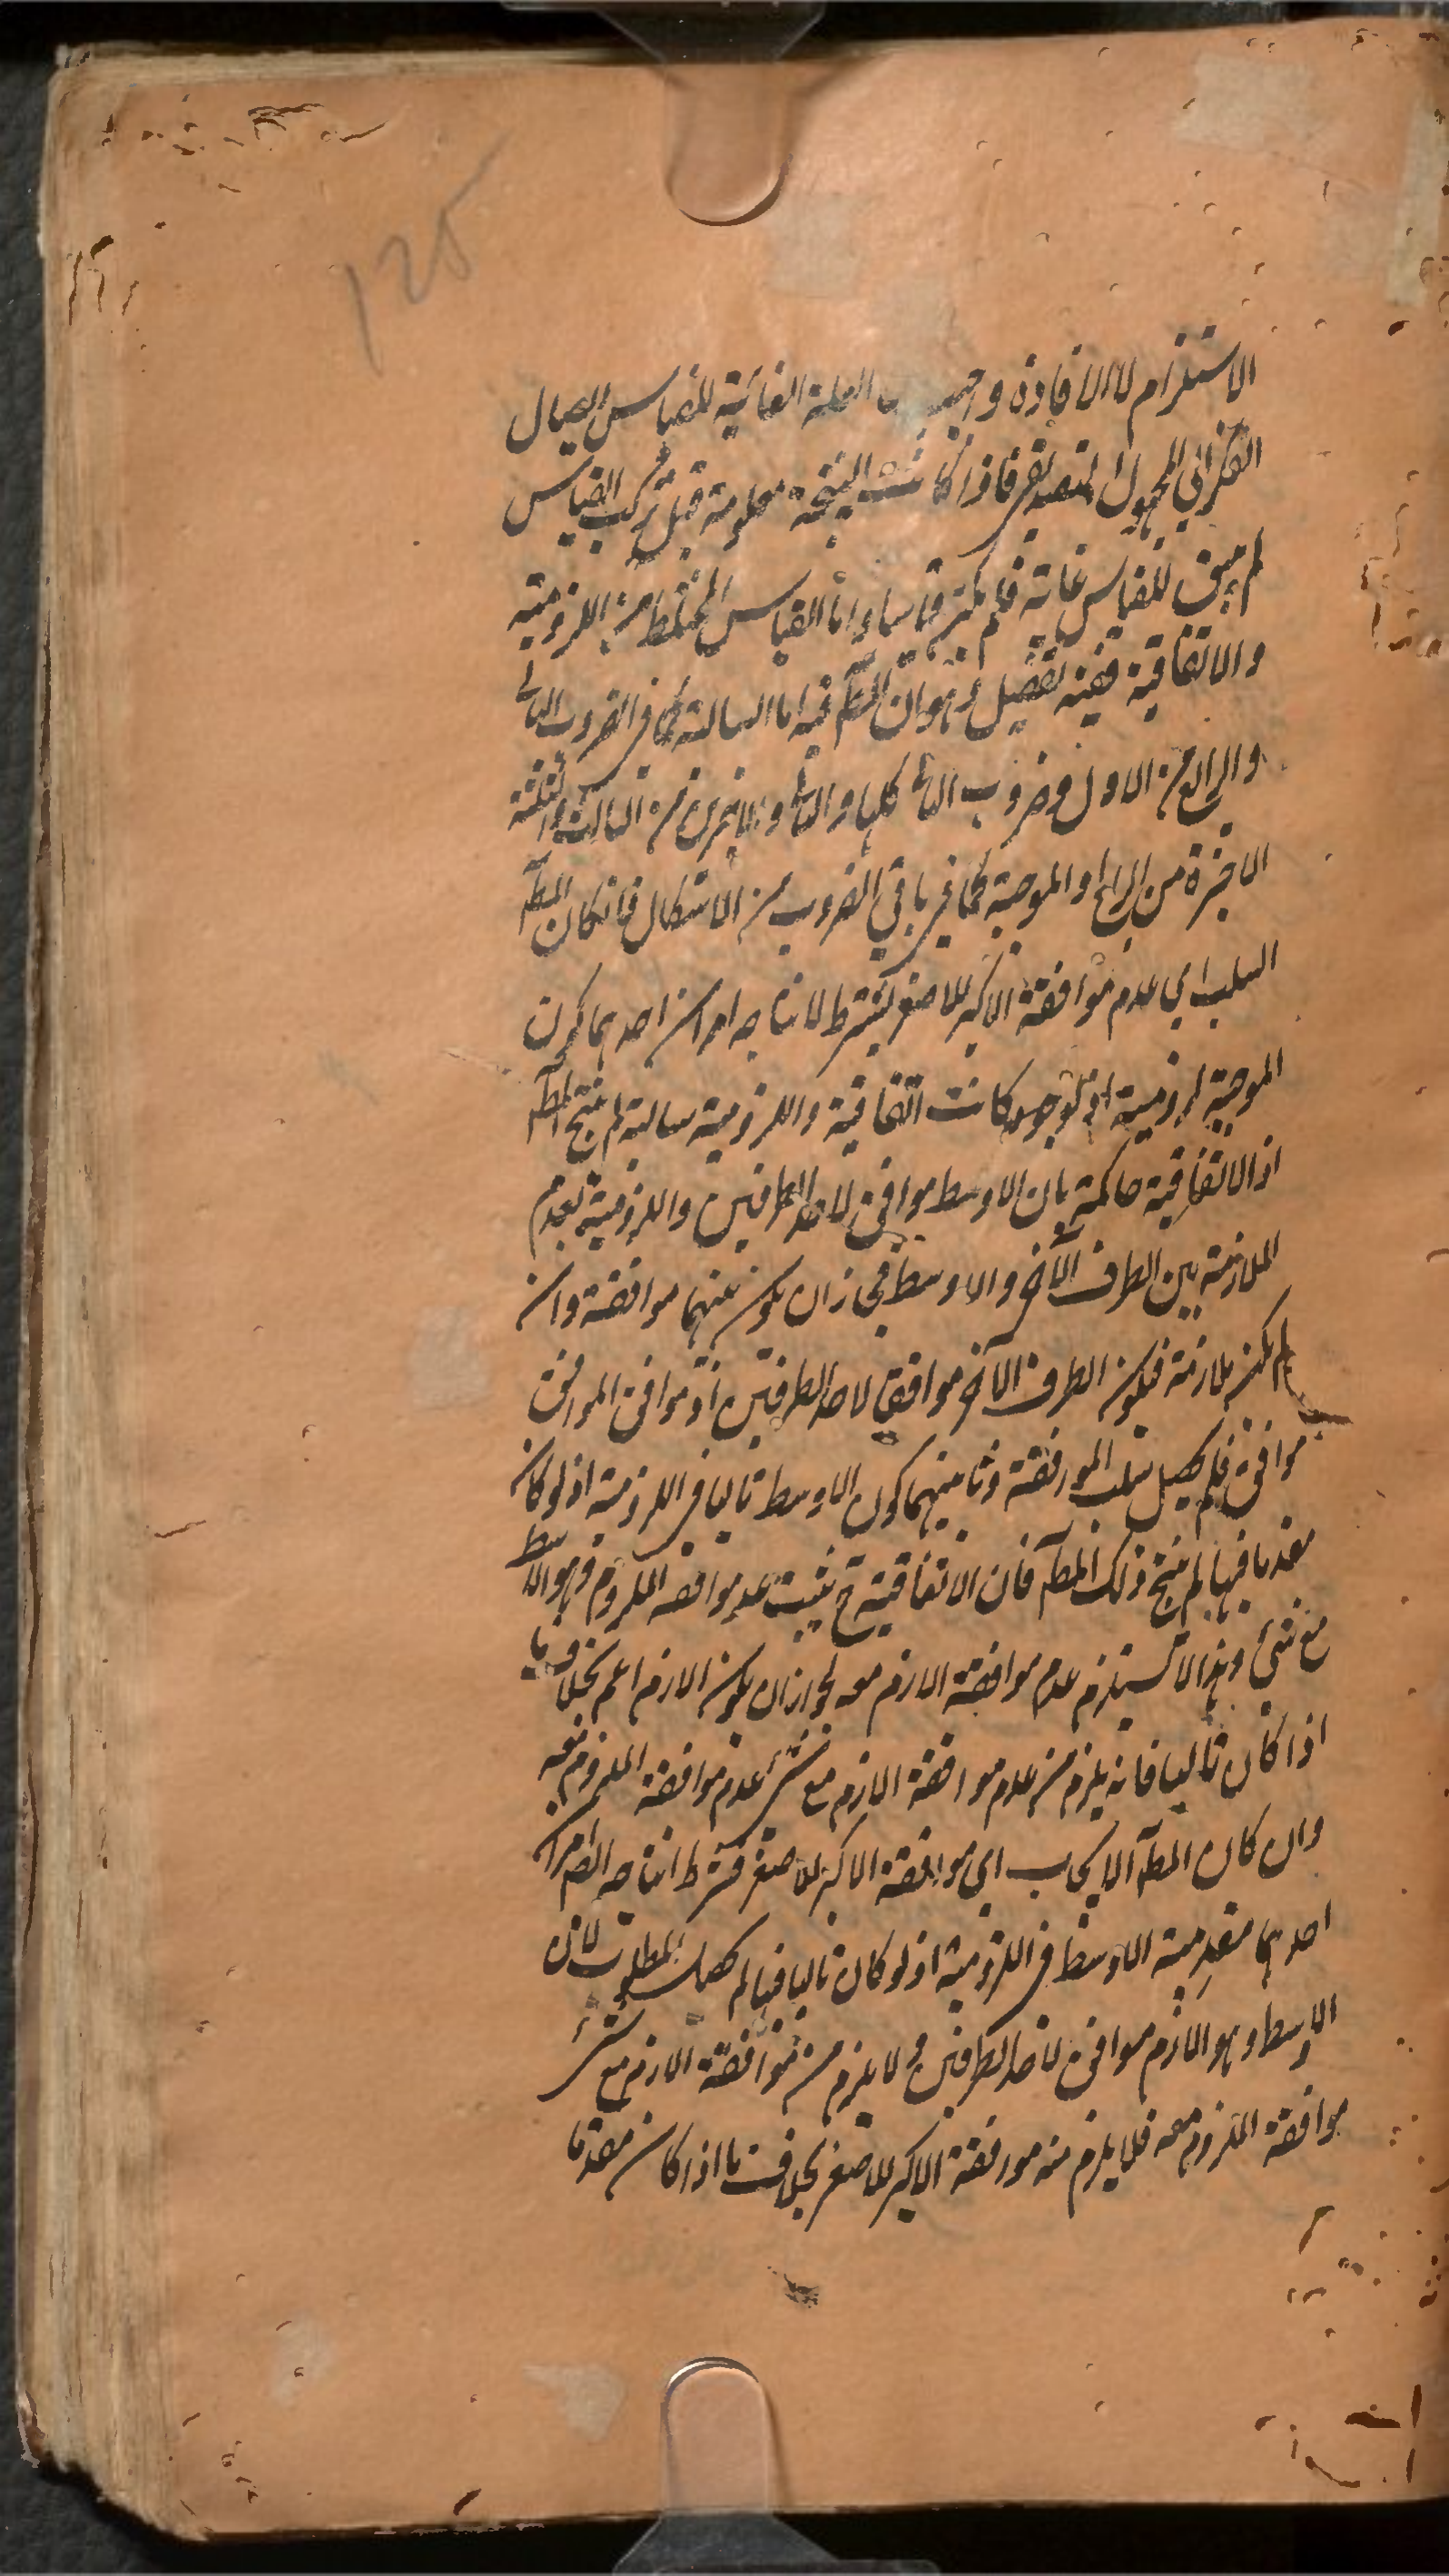 125
الاستلزام لا الافادة واجيب بان العلة الغائية للقياس ايصال
الفكر الى المجهول التصديقي فاذا كانت النتيجة معلومة قبل تركب القياس
لم يبق للقياس غاية فلم يكن قياسا واما القياس المختلط من اللزومية
والاتفاقية ففيه تفصيل وهو ان المط فيه اما السالبة كما في الضرب الثاني
والرابع من الاول وضروب الثاني كلها والثاني والاخيرين من الثالث والثلثة
الاخيرة من الرابع او الموجبة كما في باقي الضروب من الاشكال فانكان المط
السلب اي عدم موافقة الاكبر للاصغر يشترط لانتاجه امران احدهما كون
الموجبة لزومية اذ لو كانت اتفاقية واللزومية سالبة لم ينتج المط
اذ الاتفاقية حاكمة بان الاوسط موافق لاحد الطرفين واللزومية بعدم
الملازمة بين الطرف الآخر والاوسط فجاز ان يكون بينهما موافقة وان
لم يكن ملازمة فيكون الطرف الآخر موافقا لاحد الطرفين اذ موافق الموافق
موافق فلم يحصل سلب الموافقة وثانيهما كون الاوسط تاليا في اللزومية اذ لو كان
مقدما فيها لم ينتج ذلك المط فان الاتفاقية ح يثبت عدم موافقة الملزوم وهو الاوسط
مع شئ وهذا لا يستلزم عدم موافقة اللازم معه لجواز ان يكون اللازم اعم بخلاف ما
اذا كان تاليا فانه يلزم من عدم موافقة اللازم مع شئ عدم موافقة الملزوم معه
وان كان المط الايجاب اي موافقة الاكبر للاصغر فشرط انتاجه ايضا امران
احدهما مقدمية الاوسط في اللزومية اذ لو كان تاليا فيها لم يحصل المطلوب لان
الاوسط وهو اللازم موافق لاحد الطرفين ولا يلزم من موافقة اللازم مع شئ
موافقة الملزوم معه فلا يلزم منه موافقة الاكبر للاصغر بخلاف ما اذا كان مقدما